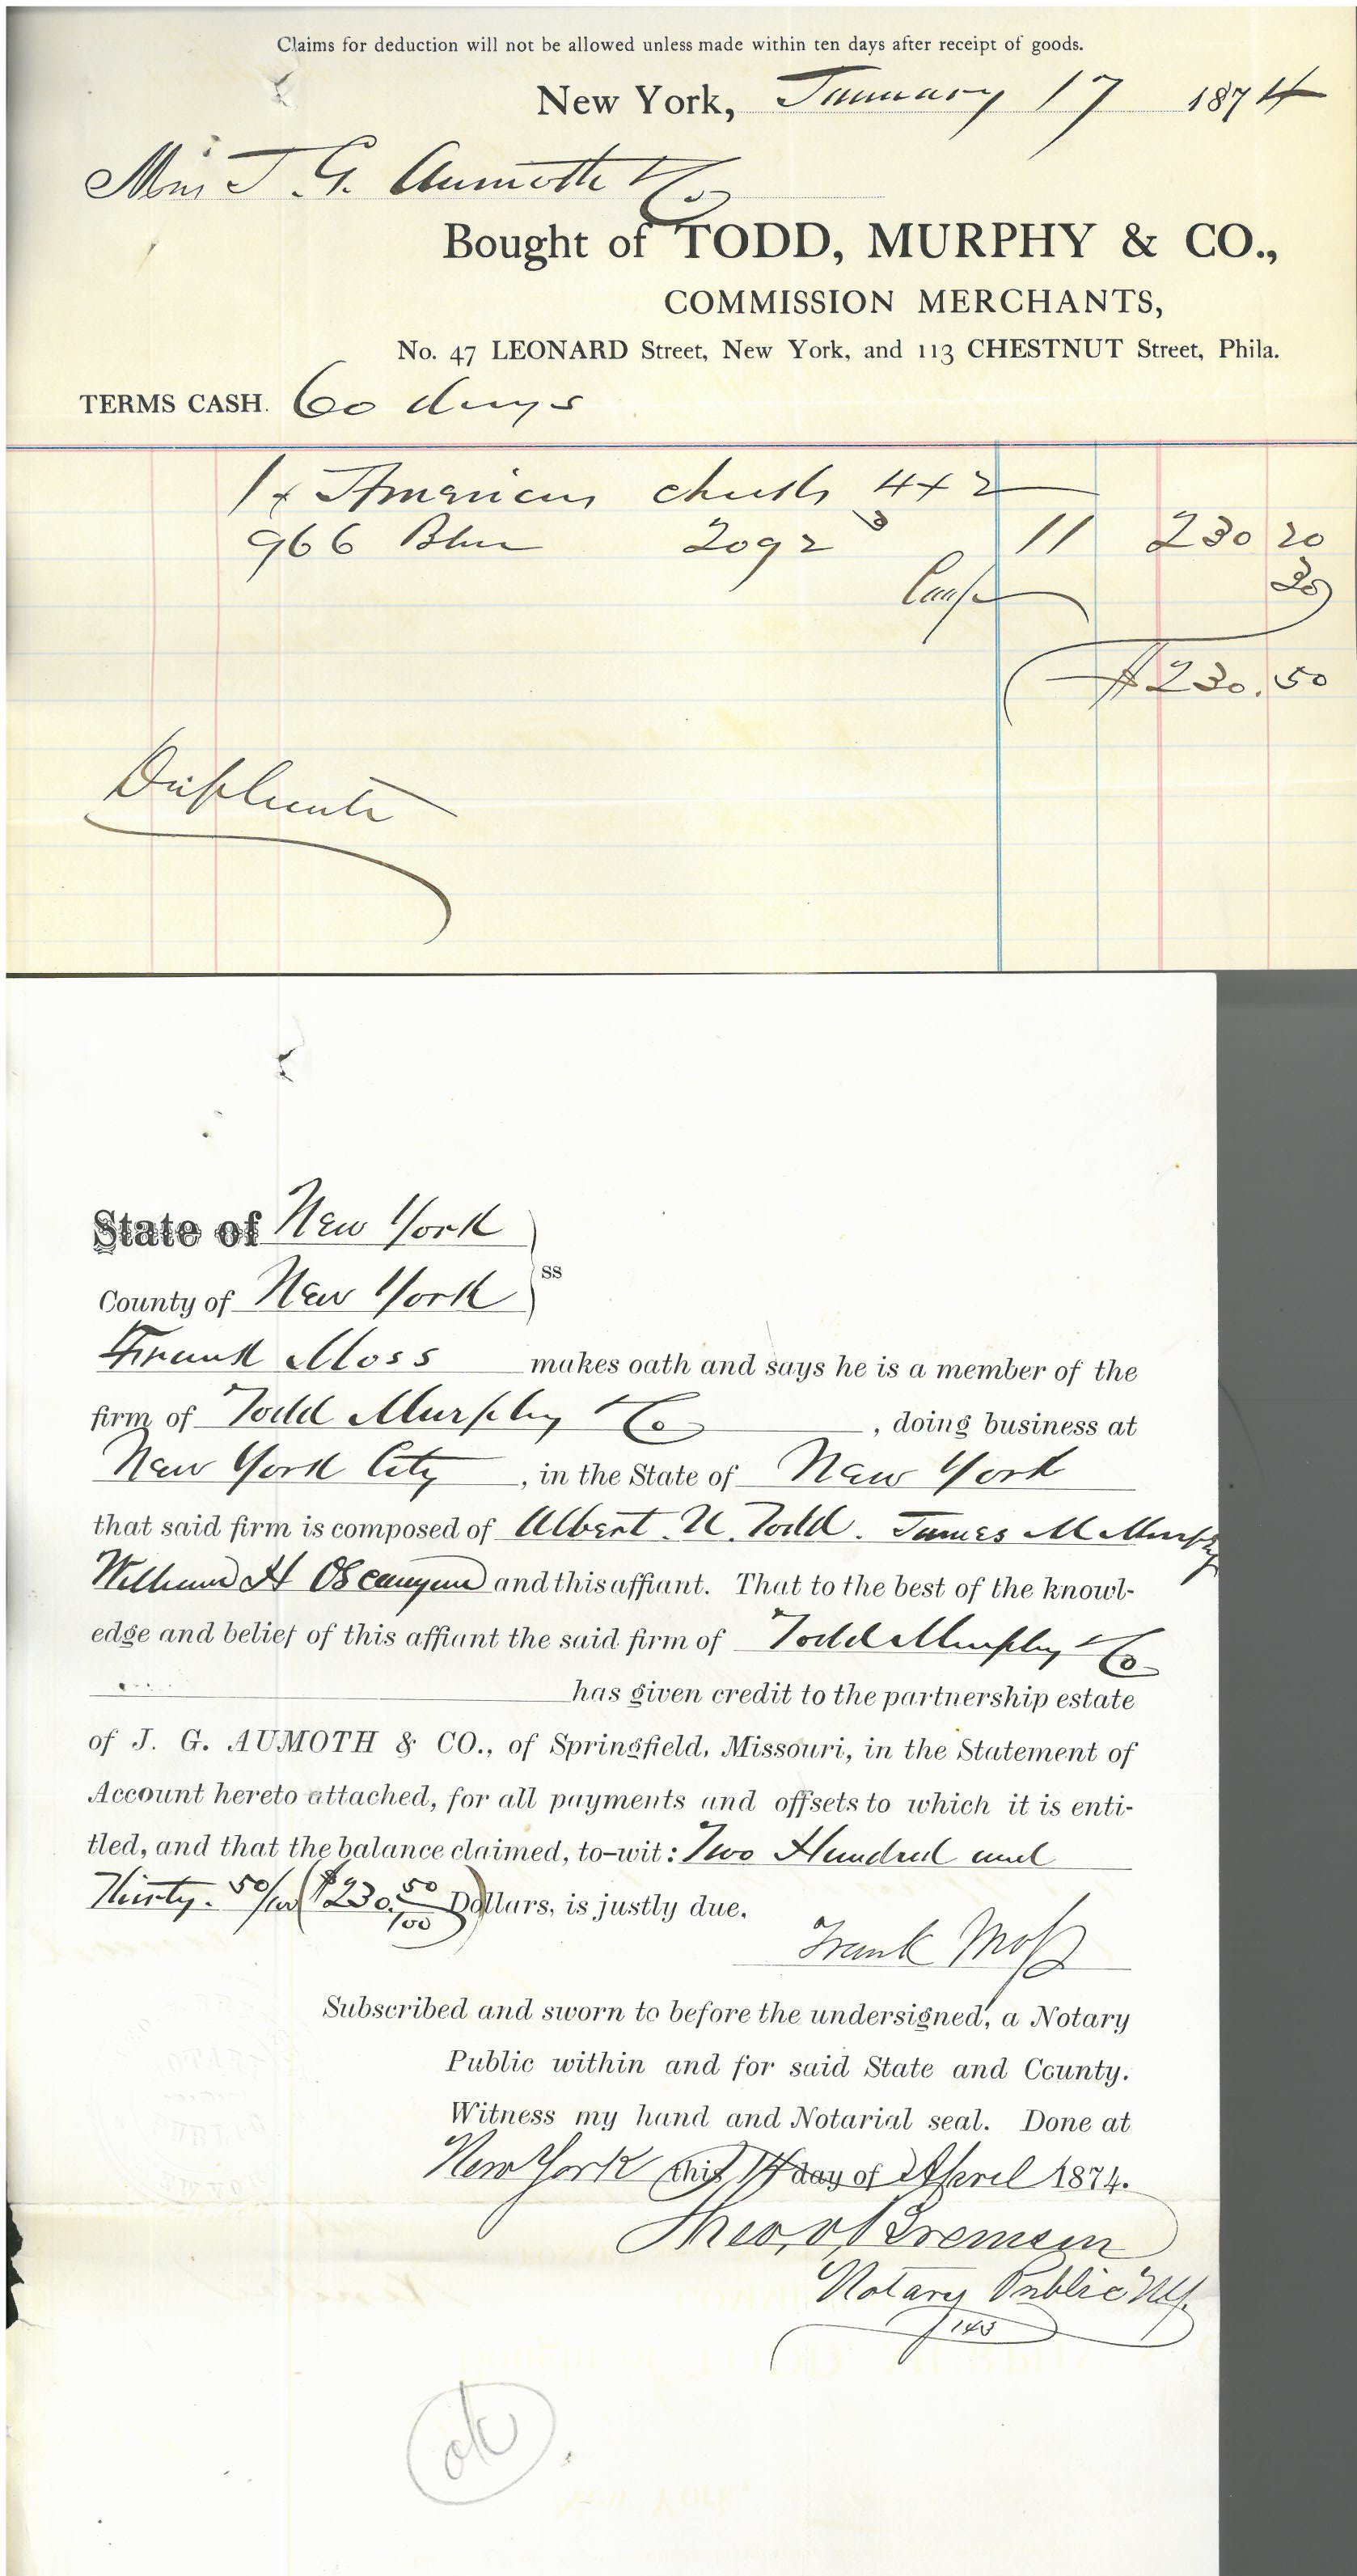 Claims for deduction will not be allowed unless made within ten days after receipt of goods.
New York, January 17 1874
J. G. Aumoth & Co
Bought of TODD, MURPHY & CO.,
COMMISSION MERCHANTS,
No. 47 LEONARD Street, New York, and 113 CHESTNUT Street, Phila.
TERMS CASH. 60 days
American checks 4x2
966 Blue 2092 3 11 230 20
30
$230.50
Duplicate
State of New York
County of New York ss
Frank Moss makes oath and says he is a member of the
firm of Todd Murphy & Co , doing business at
New York City , in the State of New York
that said firm is composed of Albert U. Todd. James M Murphy
William H Oscanyan and this affiant. That to the best of the knowl-
edge and belief of this affiant the said firm of Todd Murphy & Co
has given credit to the partnership estate
of J. G. AUMOTH & CO., of Springfield, Missouri, in the Statement of
Account hereto attached, for all payments and offsets to which it is enti-
tled, and that the balance claimed, to-wit: Two Hundred and
Thirty. 50/100 ($230. 50/100) Dollars, is justly due.
Frank Moss
Subscribed and sworn to before the undersigned, a Notary
Public within and for said State and County.
Witness my hand and Notarial seal. Done at
New York this 14 day of April 1874.
Theo. Bremsen
Notary Public NY.
143
ok